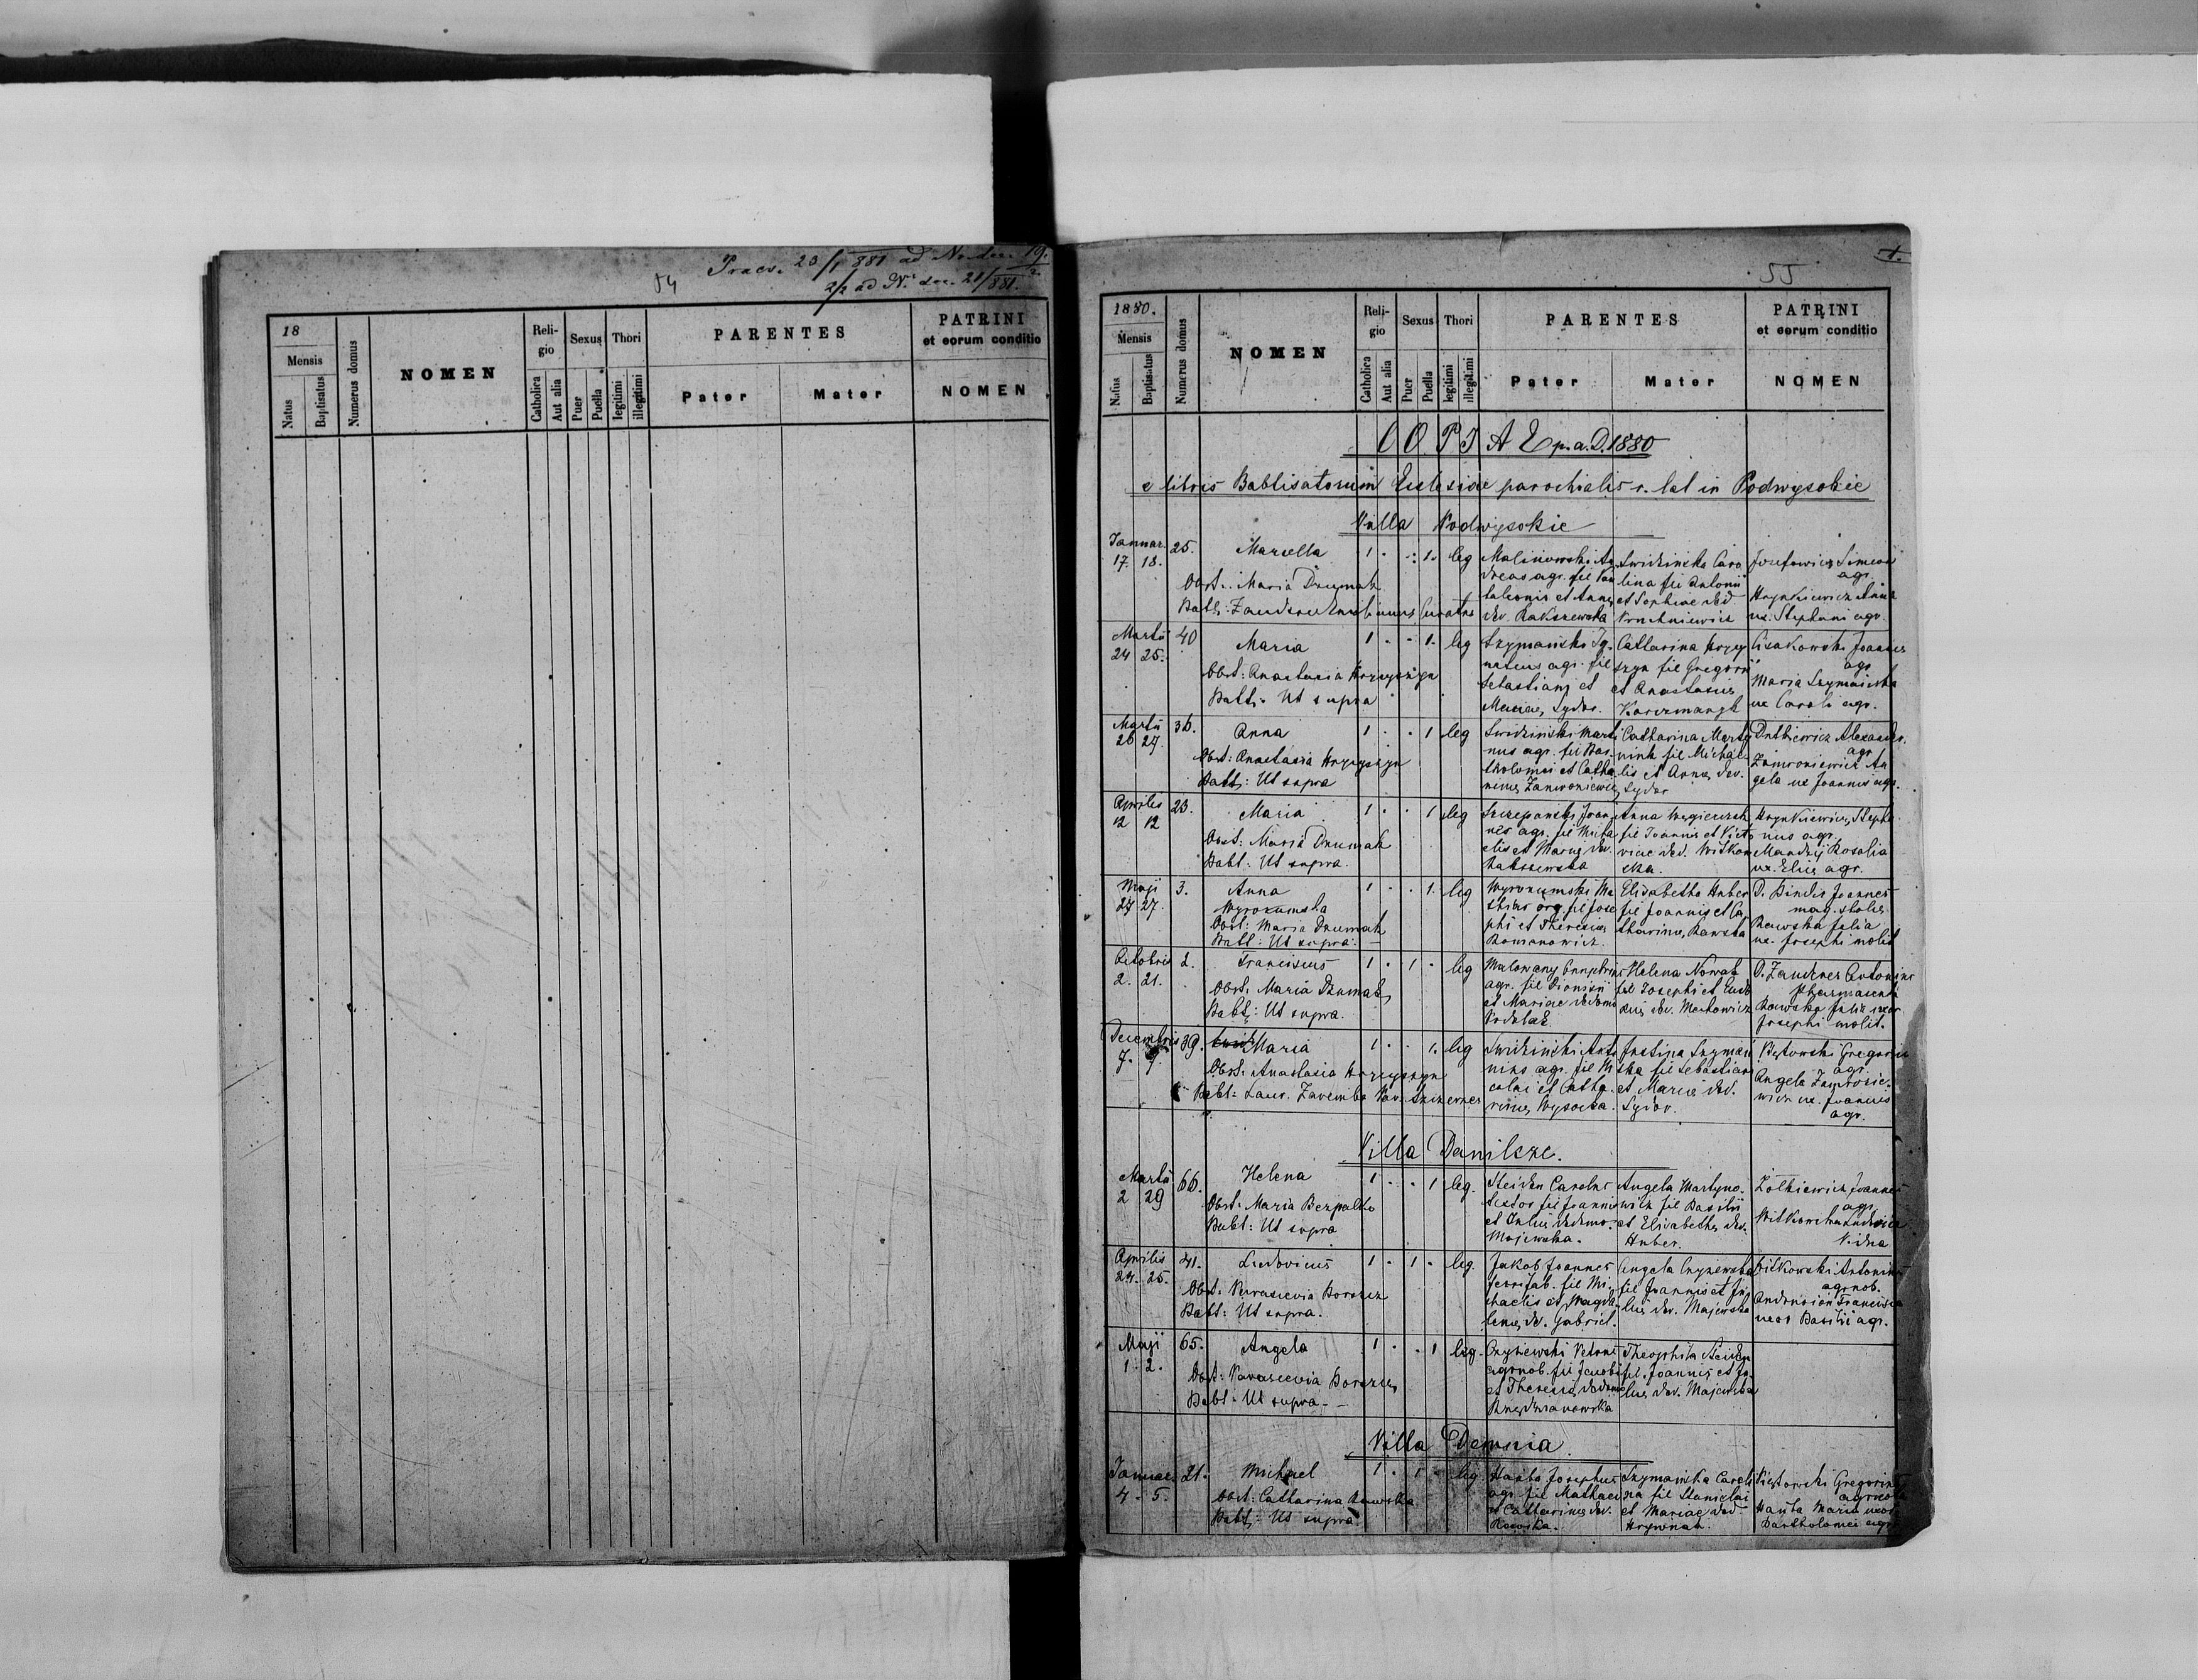 54
Praes. 23/1 881 ad No 19.
2/2 ad No 21/881.
18
Mensis
Natus
Baptisatus
Numerus domus
NOMEN
Reli-
gio
Catholica
Aut alia
Sexus
Puer
Puella
Thori
legitimi
illegitimi
PARENTES
Pater
Mater
PATRINI
et eorum conditio
NOMEN
55
1.
1880.
Mensis
Natus
Baptisatus
Numerus domus
NOMEN
Reli-
gio
Catholica
Aut alia
Sexus
Puer
Puella
Thori
legitimi
illegitimi
PARENTES
Pater
Mater
PATRINI
et eorum conditio
NOMEN
COPIAE p. a. D. 1880
e libris Babtisatorum Ecclesiae parochialis r. lat in Podwysokie
Villa Podwysokie
Januar.
17. 18.
25.
Marcella
Obst. Maria Dzumak
1 . . 1. leg
Malinowski An
dreas agr. fil Pan
taleonis et Annae
dev. Rakszewska
Swidzińska Caro
lina fil Antonii
et Sophiae ded.
Josefowicz Simeon
agr.
Hrynkiewicz Anna
ux. Stephani agr.
Martii
24 25.
40
Maria
Obst: Anastasia Hrycyszyn
Babt: Ut supra
1 . . 1. leg
Szymański Ig
natius agr. fil
Sebastiani et
Mariae Sydor.
Catharina Hrycy
szyn fil Gregorii
et Anastasiae
Lisakowski Joannes
agr
Maria Szymańska
ux Caroli agr.
Martii
26 27.
36.
Anna
Obst: Anastasia Hrycyszyn
Babt: Ut supra
1 . . 1 leg
Swidziński Marti
nus agr. fil Bar
tholomei et Catha
rinae
Catharina Marty
niuk fil Michae
lis et Annae dev.
Sydor
Dutkiewicz Alexander.
agr
An
gela ux Joannis agr.
Aprilis
12 12
23.
Maria
Obst: Maria Dzumak
Babt: Ut supra.
1 . . 1 leg
Szczepański Joan
nes agr. fil Micha
elis et Mariae dev.
Rakszewska
Anna
fil Joannis et Victo
riae ded. Witkow
ska.
Hrynkiewicz Steph
nus agr.
Mandzij Rosalia
ux. Eliae agr.
Maji
27 27.
3.
Anna
Wyrozumska
Obst: Maria Dzumak
Babt: Ut supra.
1 . . 1. leg
Wyrozumski Ma
thias org. fil Jose
phi et Theresiae
Romanowicz.
Elisabetha Huber
fil Joannis et Ca
tharinae Rawska
D. Bindis Joannes
Rawska Julia
ux. Josephi molit
Octobris
2. 21.
2.
Franciscus
Obst. Maria Dzumak
Babt: Ut supra.
1 . 1 . leg
Malowany Onuphrius
agr. fil Dionisii
et Mariae dedomo
Helena Nowak
fil Josephi et Eudo
xiae dev.
D. Zauderer Antonius
Rawska Julia uxor
Josephi molit.
Decembris
7. 9.
39.
Maria
Obst. Anastasia Hrycyszyn
Babt: Laur. Zaremba
1. . . 1. leg
Swidziński Anto
nius agr. fil Ni
colai et Catha
rinae Wysocka.
Justina Szymań
ska fil Sebastiani
et Mariae ded.
Sydor.
Gregorius
agr.
Angela
ux. Joannis
agr.
Villa Danilcze.
Martii
2 29
66.
Helena
Obst: Maria Bezpalko
Babt: Ut supra
1 . . 1 leg.
Steiden Carolus
textor fil Joannis
et Juliae dedomo.
Majewska.
Angela Martyno
wicz fil Basilii
et Elisabethae dev.
Huber.
Żółkiewicz Joannes
agr.
Witkowska Ludovica
Vidua
Aprilis
24. 25.
41.
Ludovicus
Babt: Ut supra.
1 . 1 . leg.
Jakob Joannes
fil Mi
chaelis et Magda
lenae de. Gabriel.
Angela Czyzewska
fil Joannis et Ju
liae dev. Majewska
Witkowski Antonius
agr nob.
Francisca
uxor Basilii agr.
Maji
1. 2.
65.
Angela
Babt: Ut supra.
1 . . 1 leg.
Czyzewski
agr nob. fil Jacobi
et Theresiae dedomo
Theophila Steiden
fil. Joannis et Ju
liae dev. Majewska
Villa Demnia
Januar.
4. 5.
21.
Michael
Obst: Catharina Rawska
Babt: Ut supra
1 . 1 . leg
Hanba Josephus
agr. fil Mathaei
et Catharinae dev.
Rawska.
Szymańska Caroli
na fil Stanislai
et Mariae ded
Gregorius
agricola
Hanba Maria uxor
Bartholomei agr.